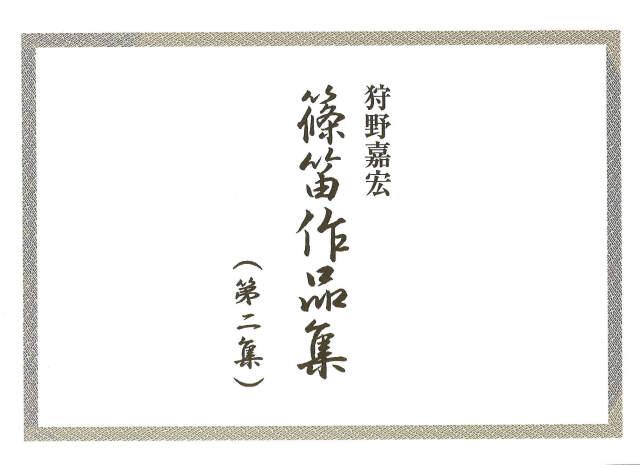 狩野嘉宏
篠笛作品集
（第二集）